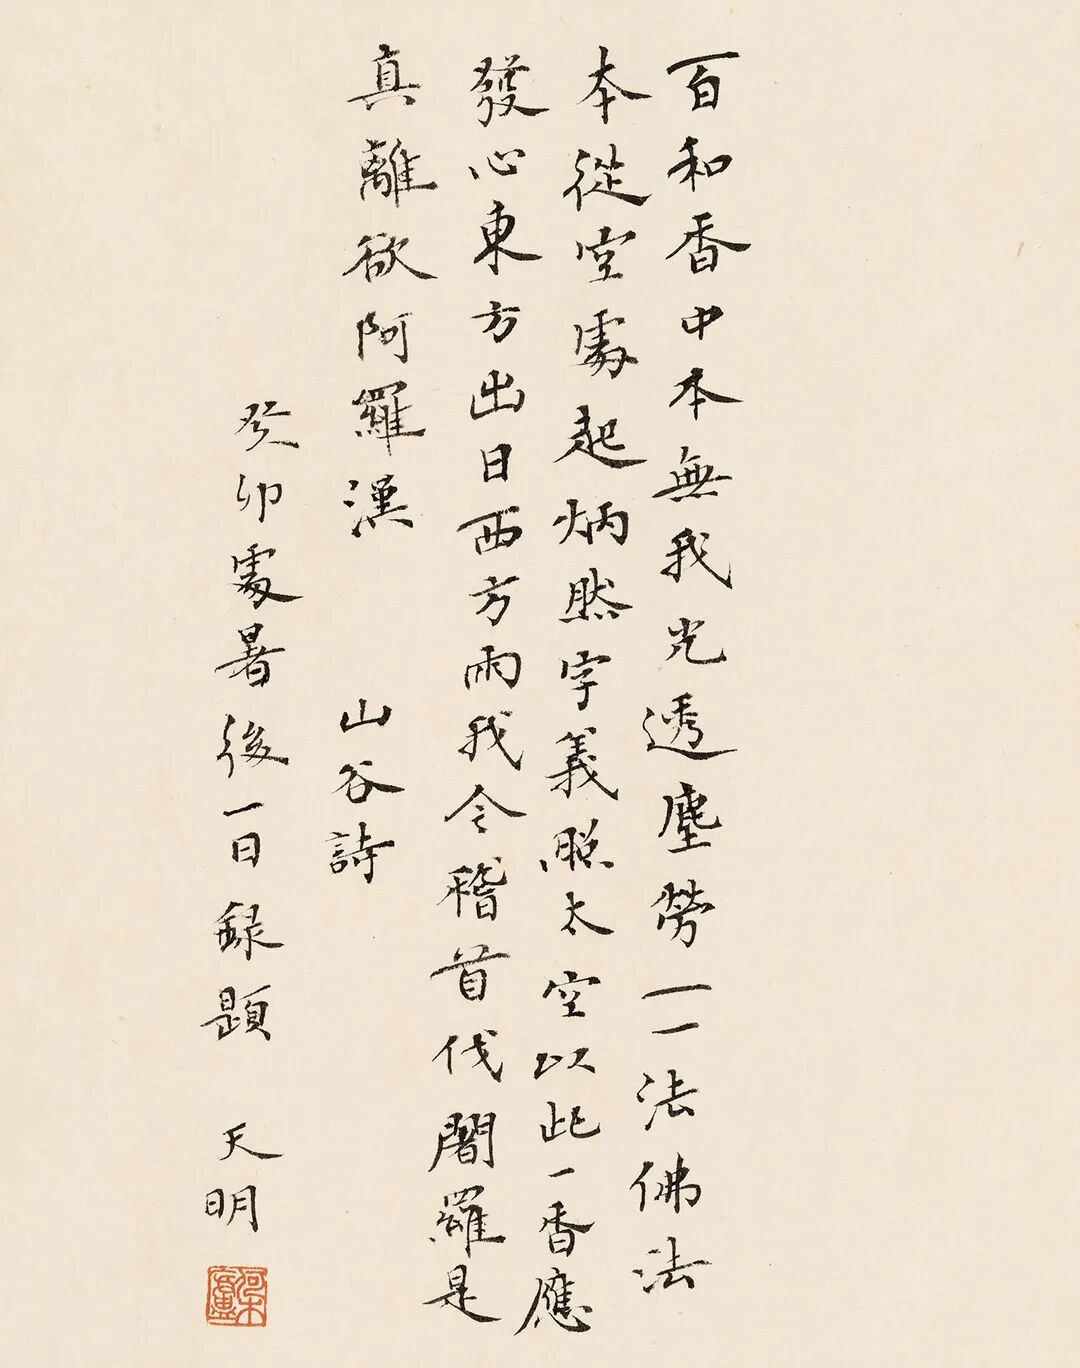 百和香中本無我光透塵勞一一法佛法
本從空處起炳然字義照太空以此一香應
發心東方出日西方雨我今稽首伐闍羅是
真離欲阿羅漢 山谷詩
癸卯處暑後一日録題 天明